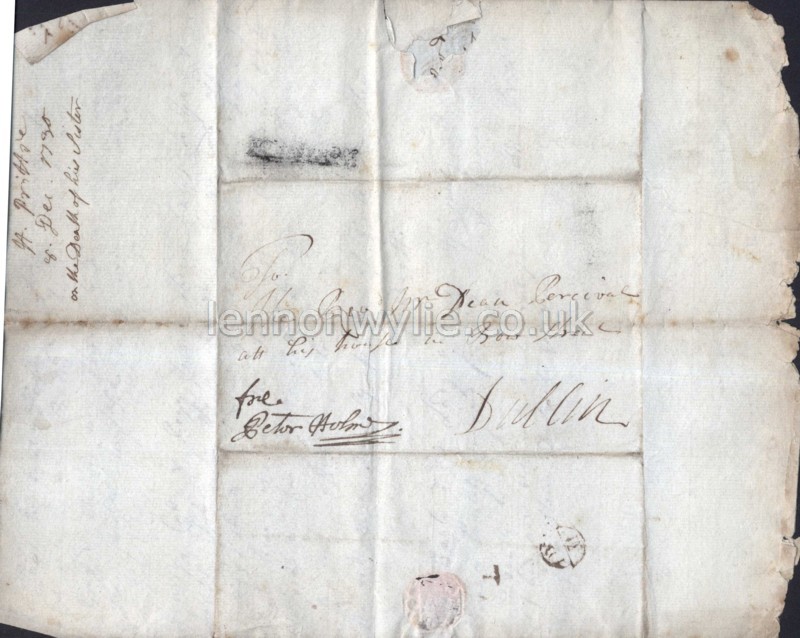 H. Prittie
8. Dec. 1730
on the Death of his Sister
To.
The Revd Mr. Dean Percival
att his house in Bow street
Dublin
free
Peter Holmes.
lennonwylie.co.uk